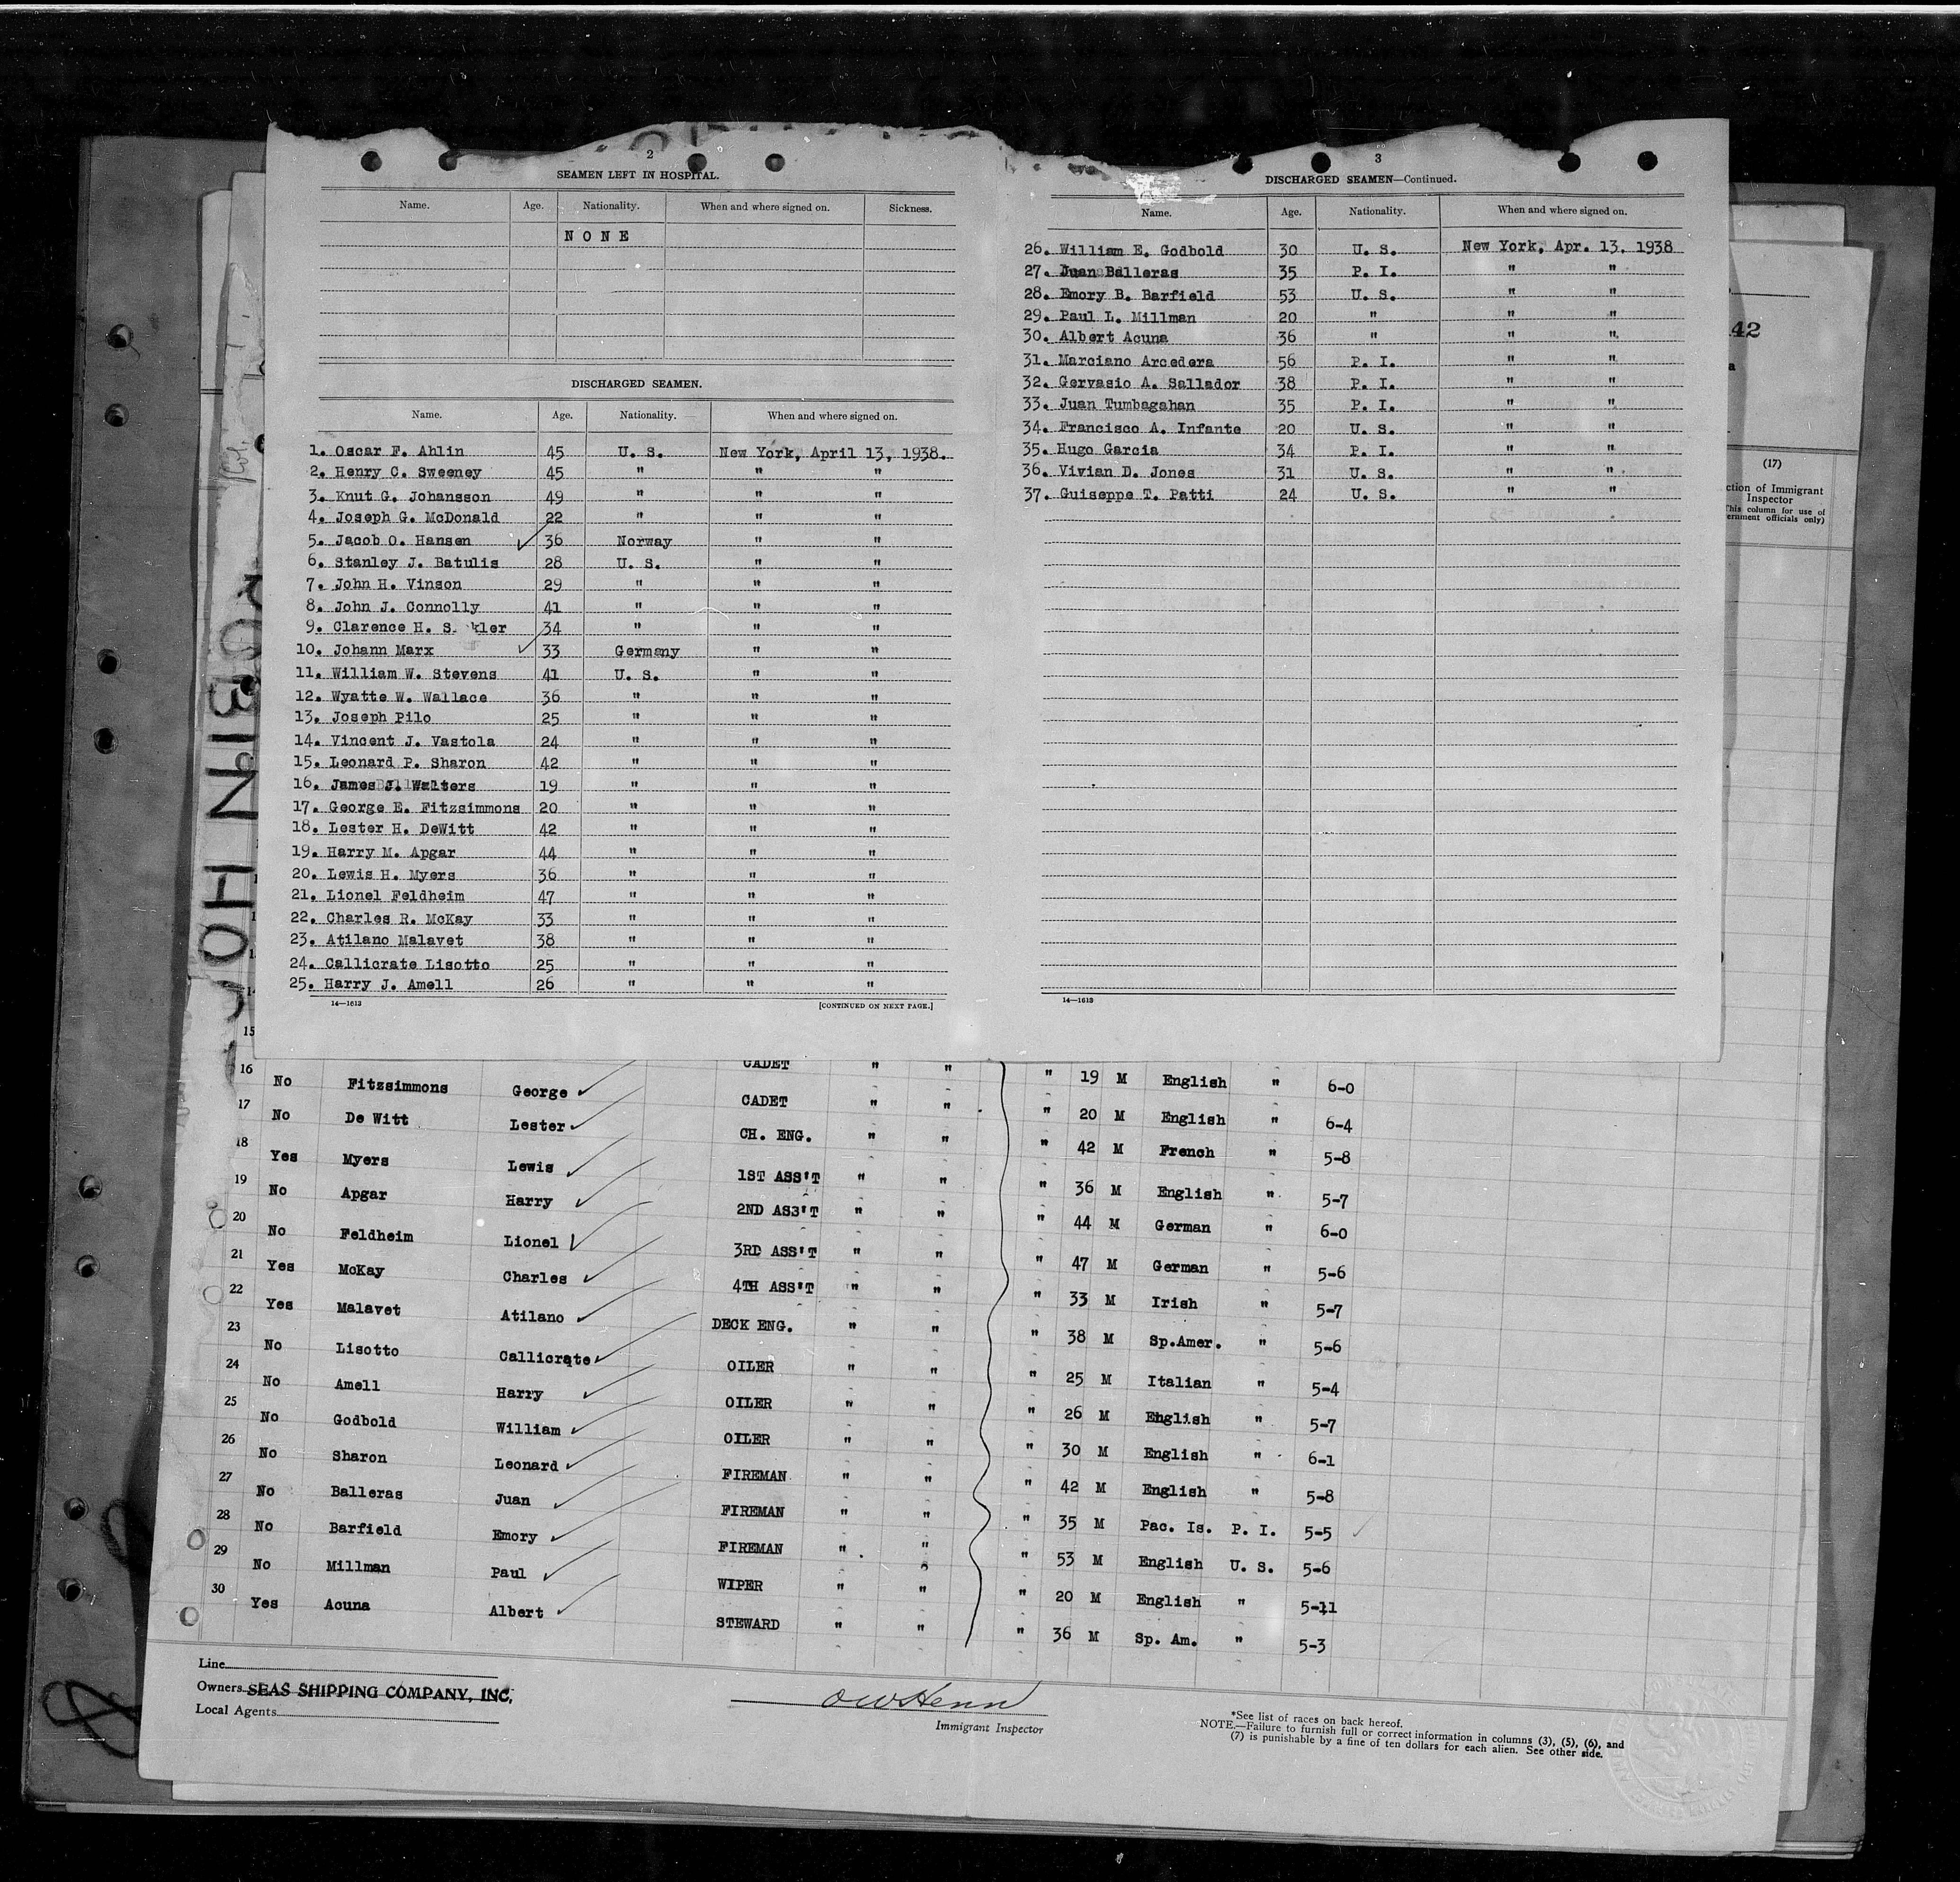 2
SEAMEN LEFT IN HOSPITAL.
Name. Age. Nationality. When and where signed on. Sickness.
NONE
DISCHARGED SEAMEN.
Name. Age. Nationality. When and where signed on.
1. Oscar F. Ahlin 45 U. S. New York, April 13, 1938.
2. Henry C. Sweeney 45 " " "
3. Knut G. Johansson 49 " " "
4. Joseph G. McDonald 22 " " "
5. Jacob O. Hansen 36 Norway " "
6. Stanley J. Batulis 28 U. S. " "
7. John H. Vinson 29 " " "
8. John J. Connolly 41 " " "
9. Clarence H. 34 " " "
10. Johann Marx 33 Germany " "
11. William W. Stevens 41 U. S. " "
12. Wyatte W. Wallace 36 " " "
13. Joseph Pilo 25 " " "
14. Vincent J. Vastola 24 " " "
15. Leonard P. Sharon 42 " " "
16. James J. Walters 19 " " "
17. George E. Fitzsimmons 20 " " "
18. Lester H. DeWitt 42 " " "
19. Harry M. Apgar 44 " " "
20. Lewis H. Myers 36 " " "
21. Lionel Feldheim 47 " " "
22. Charles R. McKay 33 " " "
23. Atilano Malavet 38 " " "
24. Callicrate Lisotto 25 " " "
25. Harry J. Amell 26 " " "
14—1613 [CONTINUED ON NEXT PAGE.]
3
DISCHARGED SEAMEN—Continued.
Name. Age. Nationality. When and where signed on.
26. William E. Godbold 30 U. S. New York, Apr. 13, 1938
27. Juan Balleras 35 P. I. " "
28. Emory B. Barfield 53 U. S. " "
29. Paul L. Millman 20 " " "
30. Albert Acuna 36 " " "
31. Marciano Arcedera 56 P. I. " "
32. Gervasio A. Sallador 38 P. I. " "
33. Juan Tumbagahan 35 P. I. " "
34. Francisco A. Infante 20 U. S. " "
35. Hugo Garcia 34 P. I. " "
36. Vivian D. Jones 31 U. S. " "
37. Guiseppe T. Patti 24 U. S. " "
14—1613
42
(17)
ction of Immigrant
Inspector
This column for use of
ernment officials only)
15
CADET " " " 19 M English " 6-0
16 No Fitzsimmons George CADET " " " 20 M English " 6-4
17 No De Witt Lester CH. ENG. " " " 42 M French " 5-8
18 Yes Myers Lewis 1ST ASS'T " " " 36 M English " 5-7
19 No Apgar Harry 2ND ASS'T " " " 44 M German " 6-0
20 No Feldheim Lionel 3RD ASS'T " " " 47 M German " 5-6
21 Yes McKay Charles 4TH ASS'T " " " 33 M Irish " 5-7
22 Yes Malavet Atilano DECK ENG. " " " 38 M Sp.Amer. " 5-6
23 No Lisotto Callicrate OILER " " " 25 M Italian " 5-4
24 No Amell Harry OILER " " " 26 M English " 5-7
25 No Godbold William OILER " " " 30 M English " 6-1
26 No Sharon Leonard FIREMAN " " " 42 M English " 5-8
27 No Balleras Juan FIREMAN " " " 35 M Pac. Is. P. I. 5-5
28 No Barfield Emory FIREMAN " " " 53 M English U. S. 5-6
29 No Millman Paul WIPER " " " 20 M English " 5-11
30 Yes Acuna Albert STEWARD " " " 36 M Sp. Am. " 5-3
Line
Owners SEAS SHIPPING COMPANY, INC.
Local Agents
Immigrant Inspector
*See list of races on back hereof.
NOTE.—Failure to furnish full or correct information in columns (3), (5), (6), and
(7) is punishable by a fine of ten dollars for each alien. See other side.